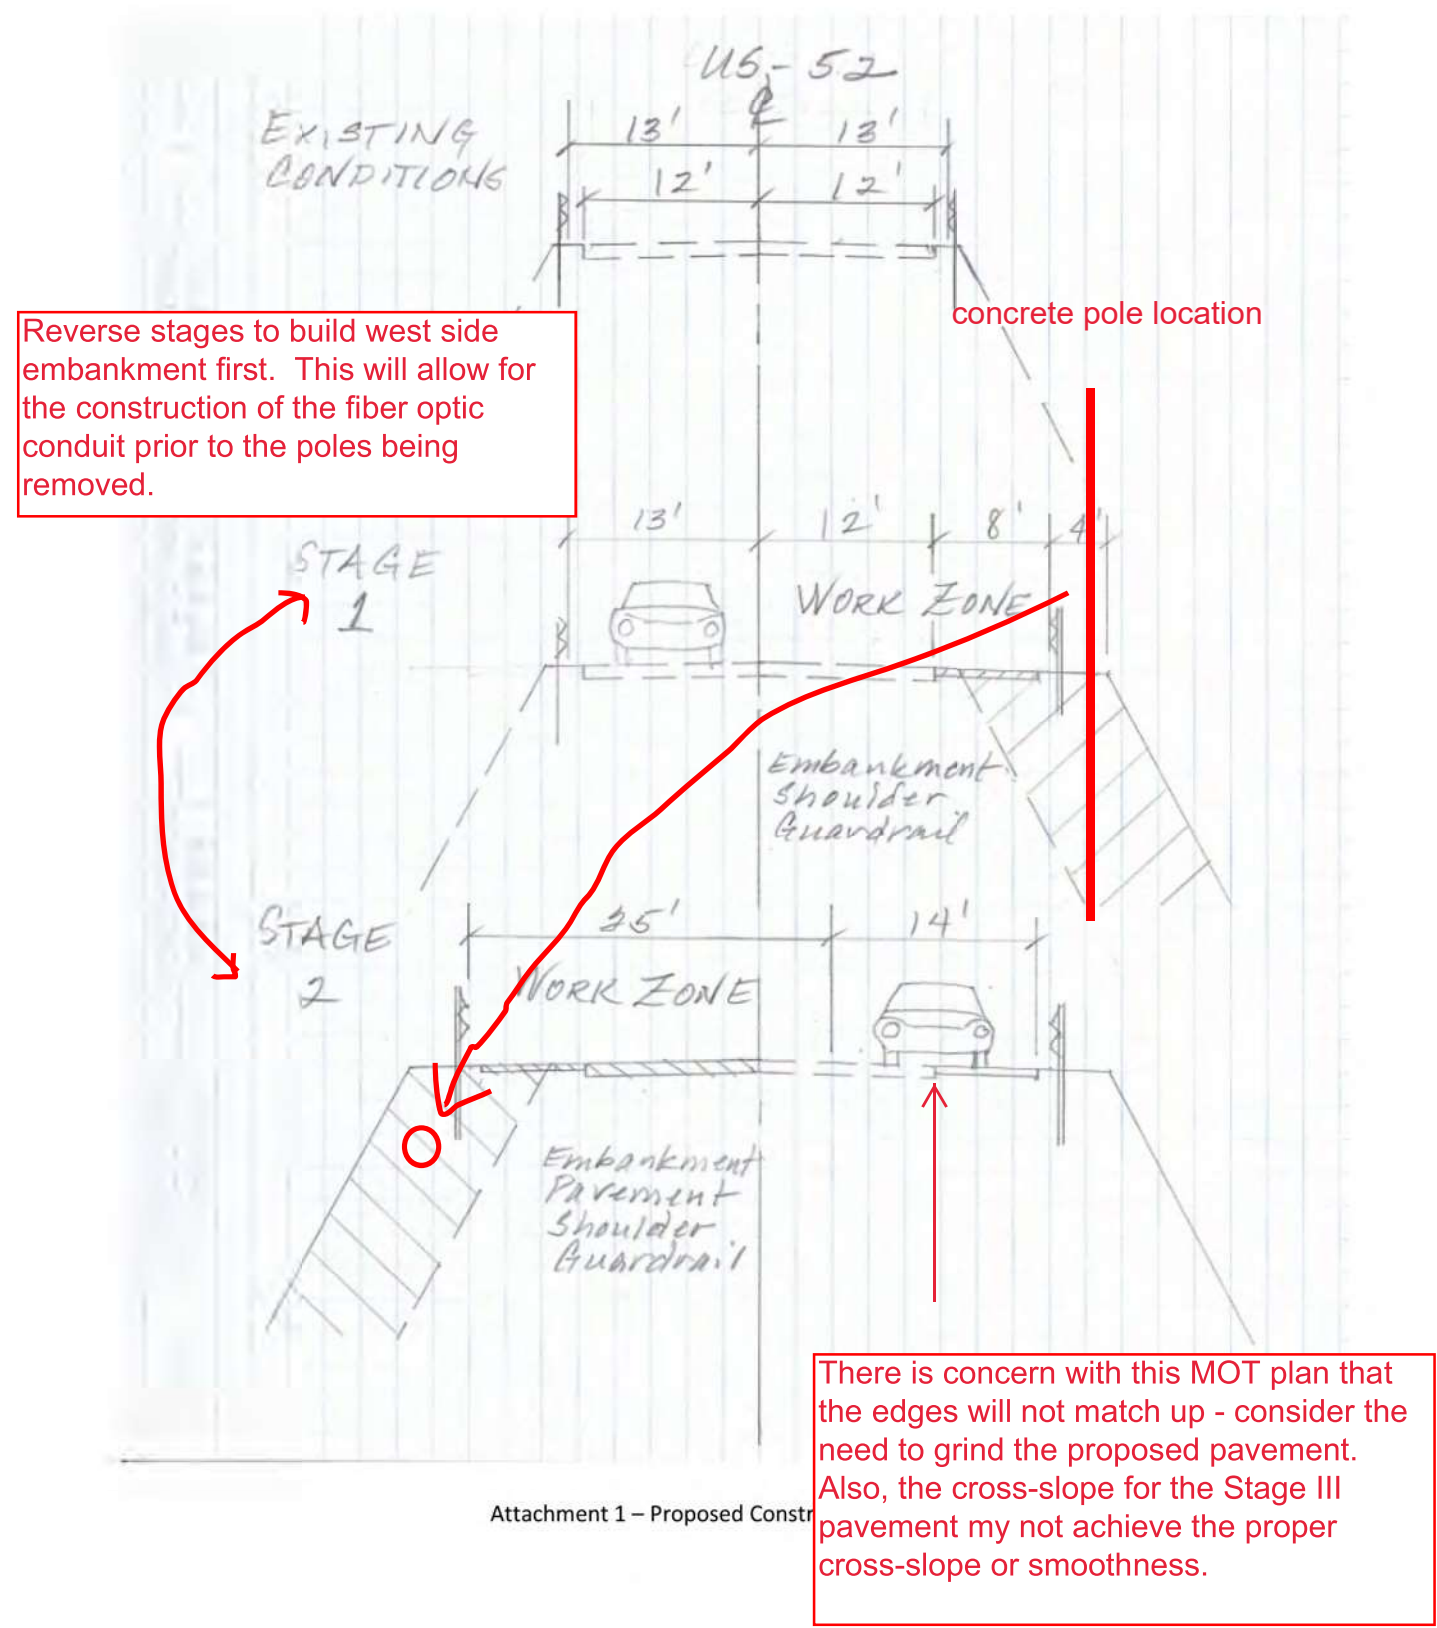 US-52
℄
EXISTING
CONDITIONS
13'
13'
12'
12'
concrete pole location
Reverse stages to build west side
embankment first.  This will allow for
the construction of the fiber optic
conduit prior to the poles being
removed.
13'
12'
8'
4'
STAGE
1
WORK ZONE
Embankment
Shoulder
Guardrail
STAGE
2
25'
14'
WORK ZONE
Embankment
Pavement
Shoulder
Guardrail
There is concern with this MOT plan that
the edges will not match up - consider the
need to grind the proposed pavement.
Also, the cross-slope for the Stage III
pavement my not achieve the proper
cross-slope or smoothness.
Attachment 1 – Proposed Constr